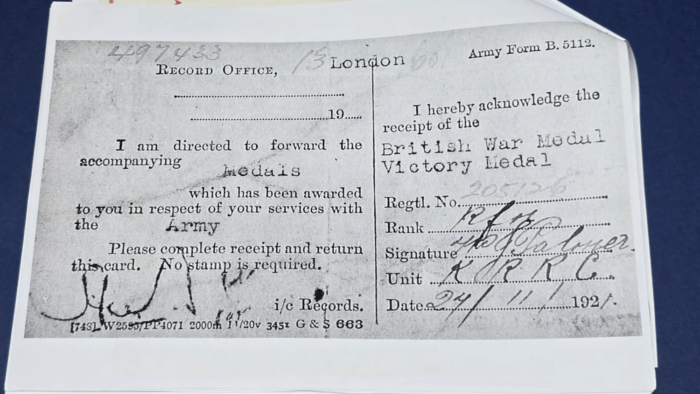 497433
RECORD OFFICE,
13 London
19
I am directed to forward the
accompanying
Medals
which has been awarded
to you in respect of your services with
the Army
Please complete receipt and return
this card. No stamp is required.
i/c Records.
2000m 11/20v 345r G & S 663
Army Form B. 5112.
I hereby acknowledge the
receipt of the
British War Medal
Victory Medal
Regtl. No. 205126
Rank Rfn
Signature
Unit K R R C.
Date 24/11/1921.